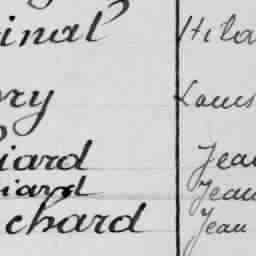 inal Hila
ory Louis
iard Jean
iard Jean
chard Jean